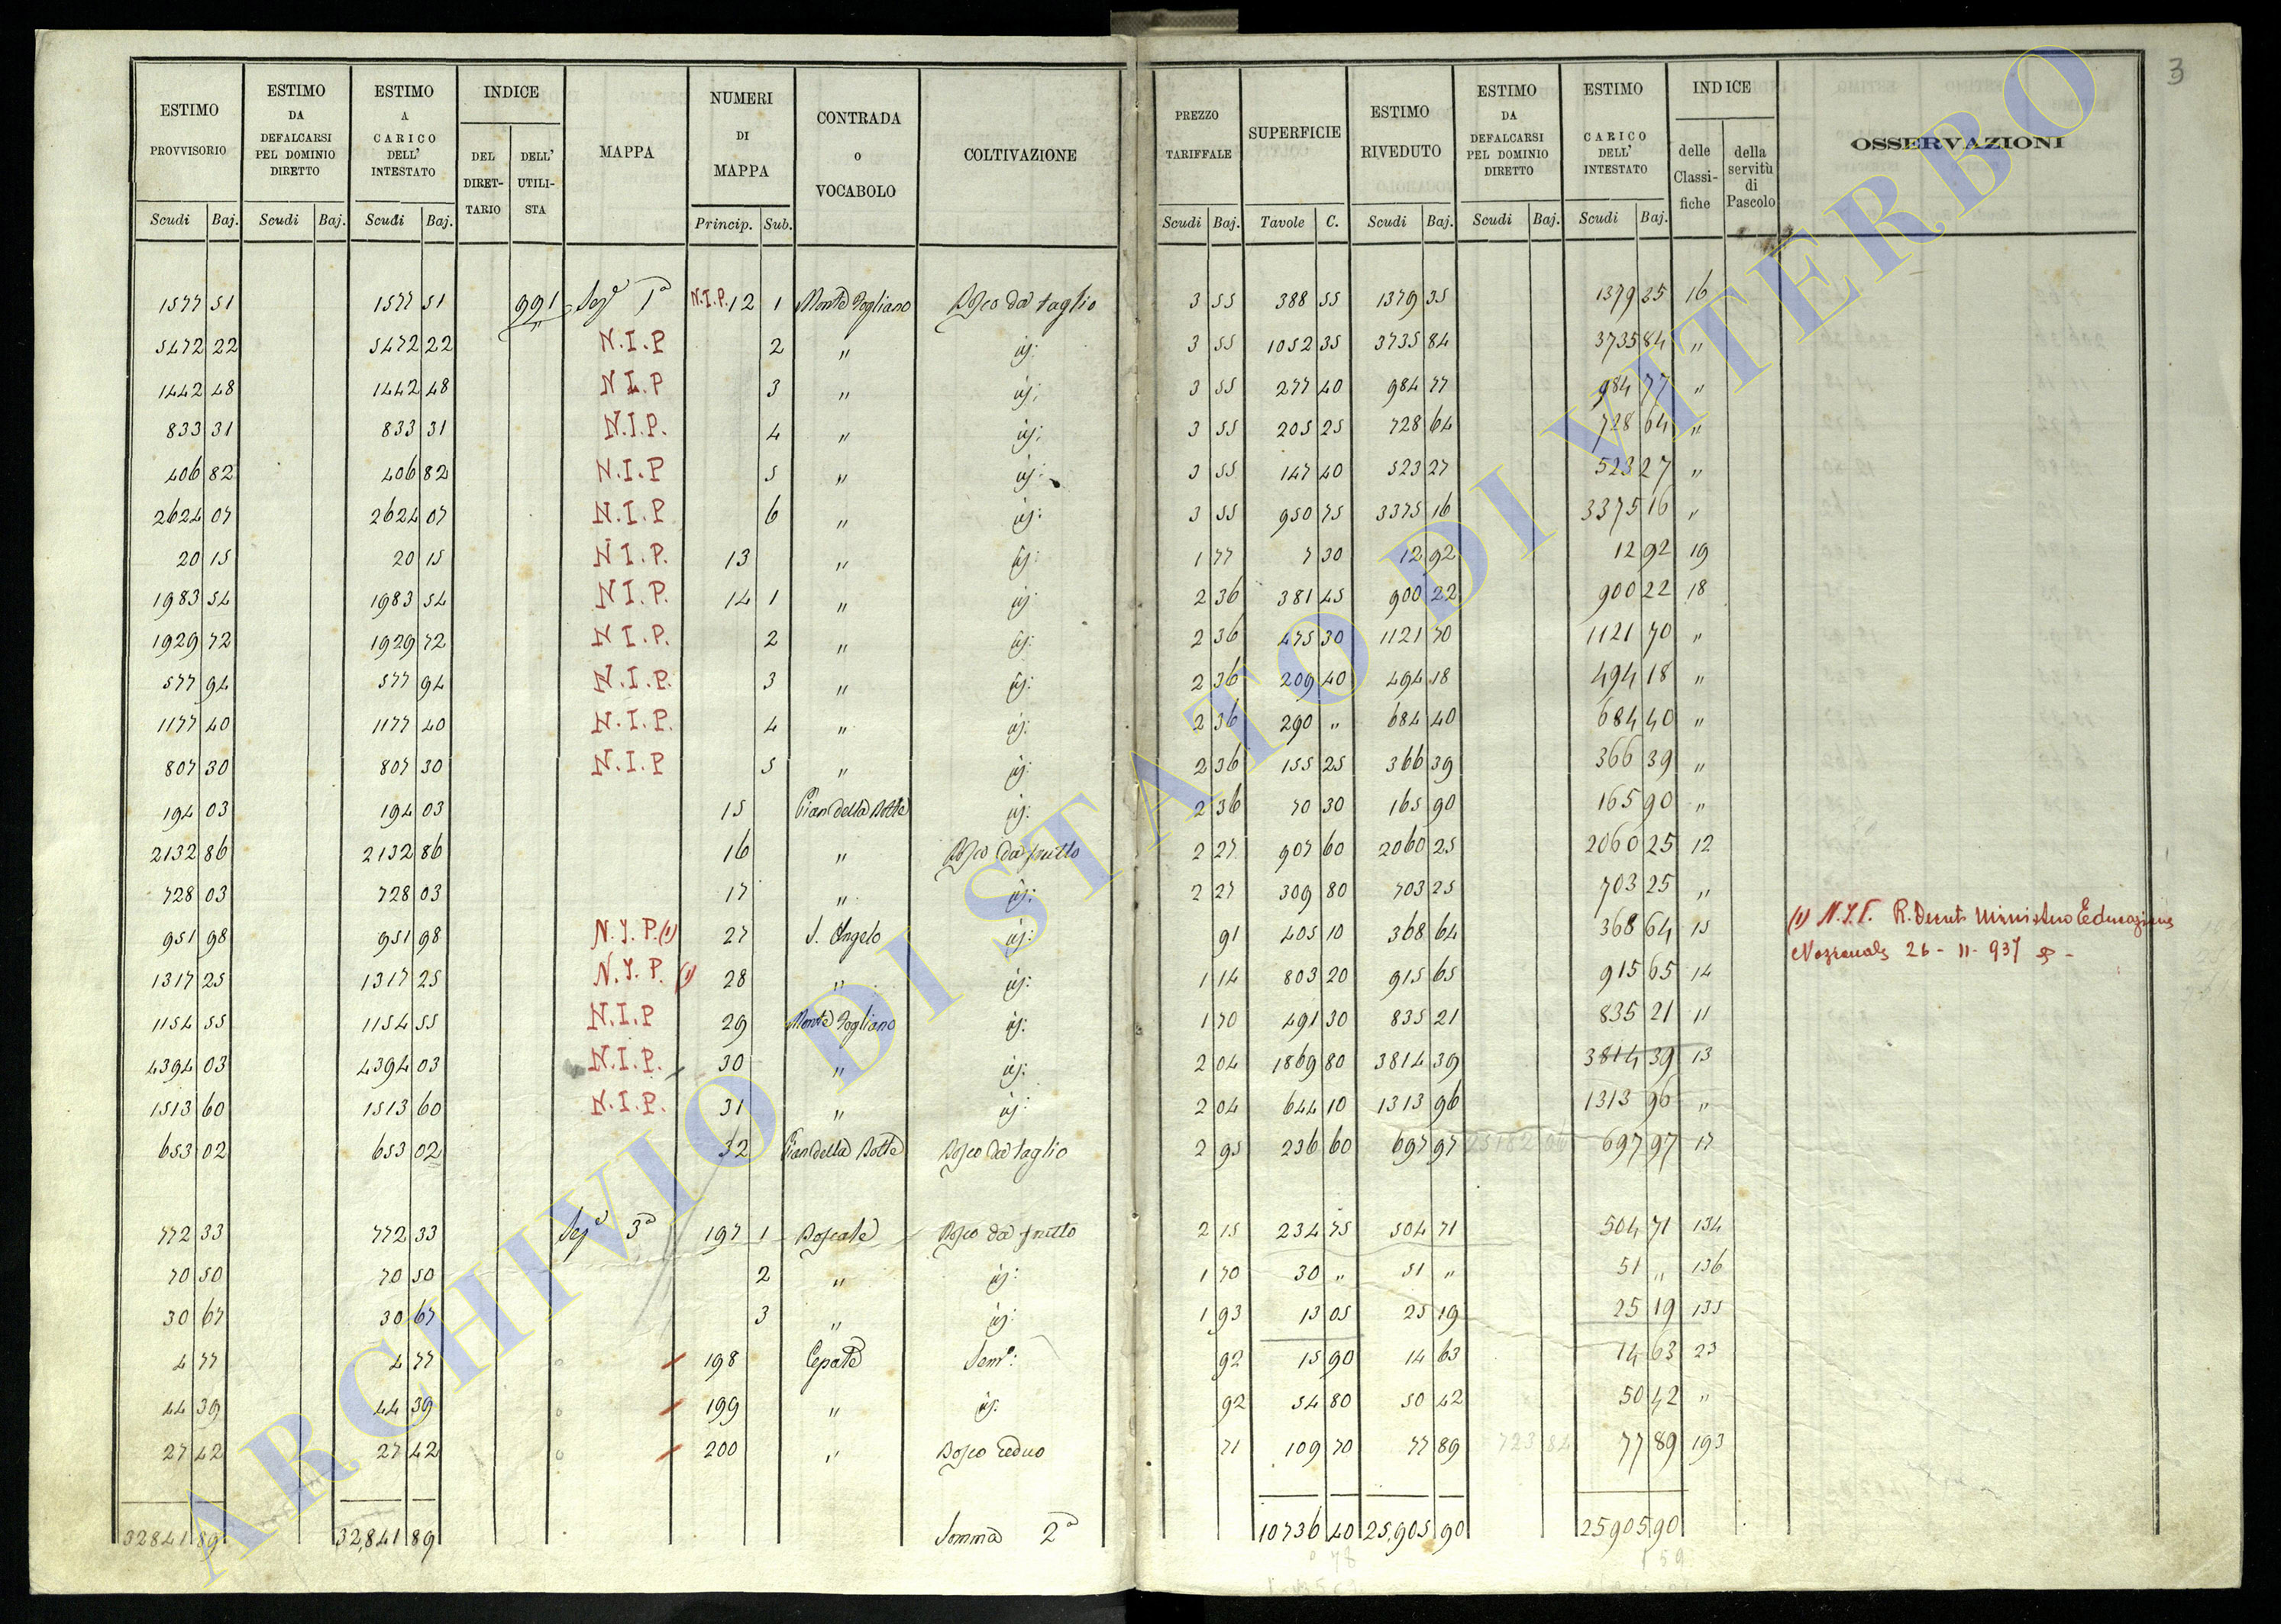 3
ESTIMO PROVVISORIO | ESTIMO DA DEFALCARSI PEL DOMINIO DIRETTO | ESTIMO A CARICO DELL' INTESTATO | INDICE DEL DIRET-TARIO | DELL' UTILI-STA | MAPPA | NUMERI DI MAPPA | CONTRADA O VOCABOLO | COLTIVAZIONE | PREZZO TARIFFALE | SUPERFICIE | ESTIMO RIVEDUTO | ESTIMO DA DEFALCARSI PEL DOMINIO DIRETTO | ESTIMO CARICO DELL' INTESTATO | INDICE delle Classi-fiche | della servitù di Pascolo | OSSERVAZIONI
Scudi Baj. | Scudi Baj. | Scudi Baj. | Princip. Sub. | Scudi Baj. | Tavole C. | Scudi Baj. | Scudi Baj. | Scudi Baj.
1577 51 | 1577 51 | 991 | Sez.e 1a | N.I.P. 12 1 | Monte Fogliano | Bosco da taglio | 3 55 | 388 55 | 1379 35 | 1379 25 | 16
5472 22 | 5472 22 | N.I.P | 2 | " | id: | 3 55 | 1052 35 | 3735 84 | 3735 84 | "
1442 48 | 1442 48 | N I.P | 3 | " | id: | 3 55 | 277 40 | 984 77 | 984 77 | "
833 31 | 833 31 | N.I.P. | 4 | " | id: | 3 55 | 205 25 | 728 64 | 728 64 | "
406 82 | 406 82 | N.I.P | 5 | " | id: | 3 55 | 147 40 | 523 27 | 523 27 | "
2624 07 | 2624 07 | N.I.P | 6 | " | id: | 3 55 | 950 75 | 3375 16 | 3375 16 | "
20 15 | 20 15 | N I.P. | 13 | " | id: | 1 77 | 7 30 | 12 92 | 12 92 | 19
1983 54 | 1983 54 | N I.P. | 14 1 | " | id: | 2 36 | 381 45 | 900 22 | 900 22 | 18
1929 72 | 1929 72 | N I.P. | 2 | " | id: | 2 36 | 475 30 | 1121 70 | 1121 70 | "
577 94 | 577 94 | N.I.P. | 3 | " | id: | 2 36 | 209 40 | 494 18 | 494 18 | "
1177 40 | 1177 40 | N.I.P. | 4 | " | id: | 2 36 | 290 " | 684 40 | 684 40 | "
807 30 | 807 30 | N.I.P | 5 | " | id: | 2 36 | 155 25 | 366 39 | 366 39 | "
194 03 | 194 03 | 15 | Pian della Botte | id: | 2 36 | 70 30 | 165 90 | 165 90 | "
2132 86 | 2132 86 | 16 | " | Bosco da frutto | 2 27 | 907 60 | 2060 25 | 2060 25 | 12
728 03 | 728 03 | 17 | " | id: | 2 27 | 309 80 | 703 25 | 703 25 | "
951 98 | 951 98 | N.I.P. (1) | 27 | S. Angelo | id: | 91 | 405 10 | 368 64 | 368 64 | 15 | (1) N.I.P. R. Decreto Ministero Educazione
1317 25 | 1317 25 | N.I.P. (1) | 28 | " | id: | 1 14 | 803 20 | 915 65 | 915 65 | 14 | Nazionale 26 - 11 - 937
1154 55 | 1154 55 | N.I.P | 29 | Monte Fogliano | id: | 1 70 | 491 30 | 835 21 | 835 21 | 11
4394 03 | 4394 03 | N.I.P. | 30 | " | id: | 2 04 | 1869 80 | 3814 39 | 3814 39 | 13
1513 60 | 1513 60 | N.I.P. | 31 | " | id: | 2 04 | 644 10 | 1313 96 | 1313 96 | "
653 02 | 653 02 | 32 | Pian della Botte | Bosco da taglio | 2 95 | 236 60 | 697 97 | 697 97 | 17
772 33 | 772 33 | Sez.e 3a | 197 1 | Boscate | Bosco da frutto | 2 15 | 234 75 | 504 71 | 504 71 | 134
70 50 | 70 50 | 2 | " | id: | 1 70 | 30 " | 51 " | 51 " | 136
30 67 | 30 67 | 3 | " | id: | 1 93 | 13 05 | 25 19 | 25 19 | 135
4 77 | 4 77 | 198 | Cepate | Sem.o: | 92 | 15 90 | 14 63 | 14 63 | 23
44 39 | 44 39 | 199 | " | id. | 92 | 54 80 | 50 42 | 50 42 | "
27 42 | 27 42 | 200 | " | Bosco ceduo | 71 | 109 70 | 77 89 | 723 84 | 77 89 | 193
32841 89 | 32,841 89 | Somma 2a | 10736 40 | 25,905 90 | 25905 90
ARCHIVIO DI STATO DI VITERBO